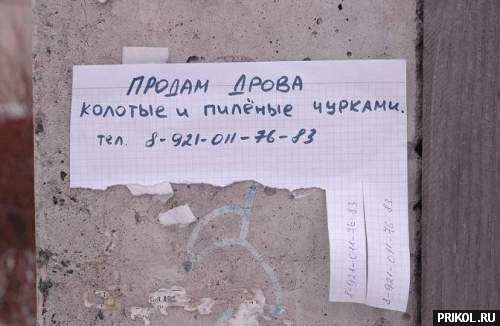 ПРОДАМ ДРОВА
КОЛОТЫЕ И ПИЛЁНЫЕ ЧУРКАМИ.
тел. 8-921-011-76-83
8-921-011-76-83
8-921-011-76-83
PRIKOL.RU